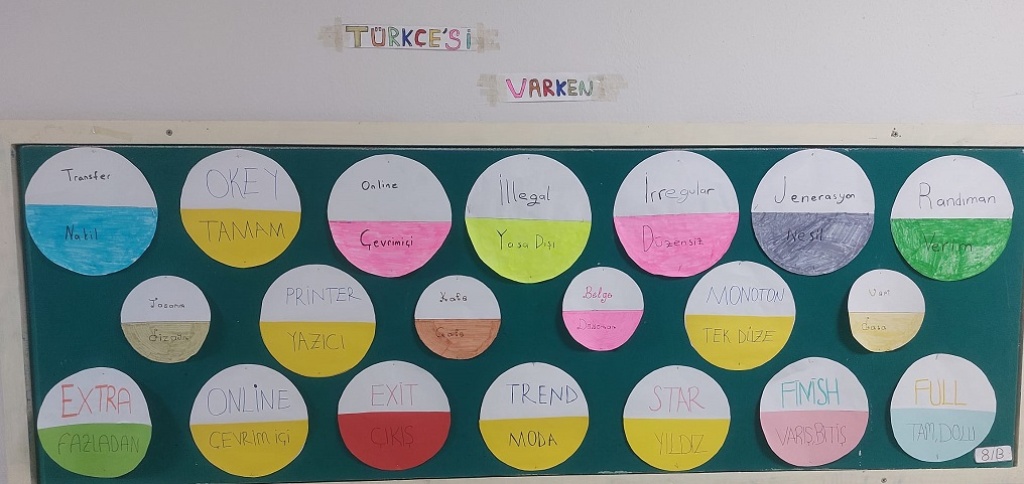 TÜRKÇE'Sİ
VARKEN
Transfer
Nakil
OKEY
TAMAM
Online
Çevrimiçi
İllegal
Yasa Dışı
İrregular
Düzensiz
Jenerasyon
Nesil
Randıman
Verim
PRINTER
YAZICI
Kafa
Belge
MONOTON
TEK DÜZE
EXTRA
FAZLADAN
ONLİNE
ÇEVRİM İÇİ
EXİT
ÇIKIŞ
TREND
MODA
STAR
YILDIZ
FINİSH
VARIŞ, BİTİŞ
FULL
TAM, DOLU
8/B